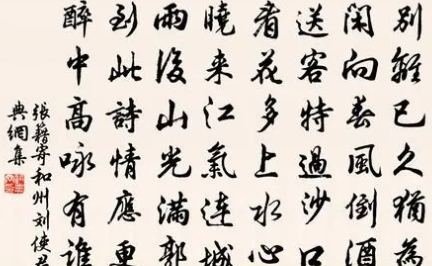 別離已久猶為
閑向春風倒酒
送客特過沙口
看花多上水心
曉來江氣連城
雨後山光滿郭
到此詩情應更
醉中高咏有誰
張籍寄和州刘使君
典網集